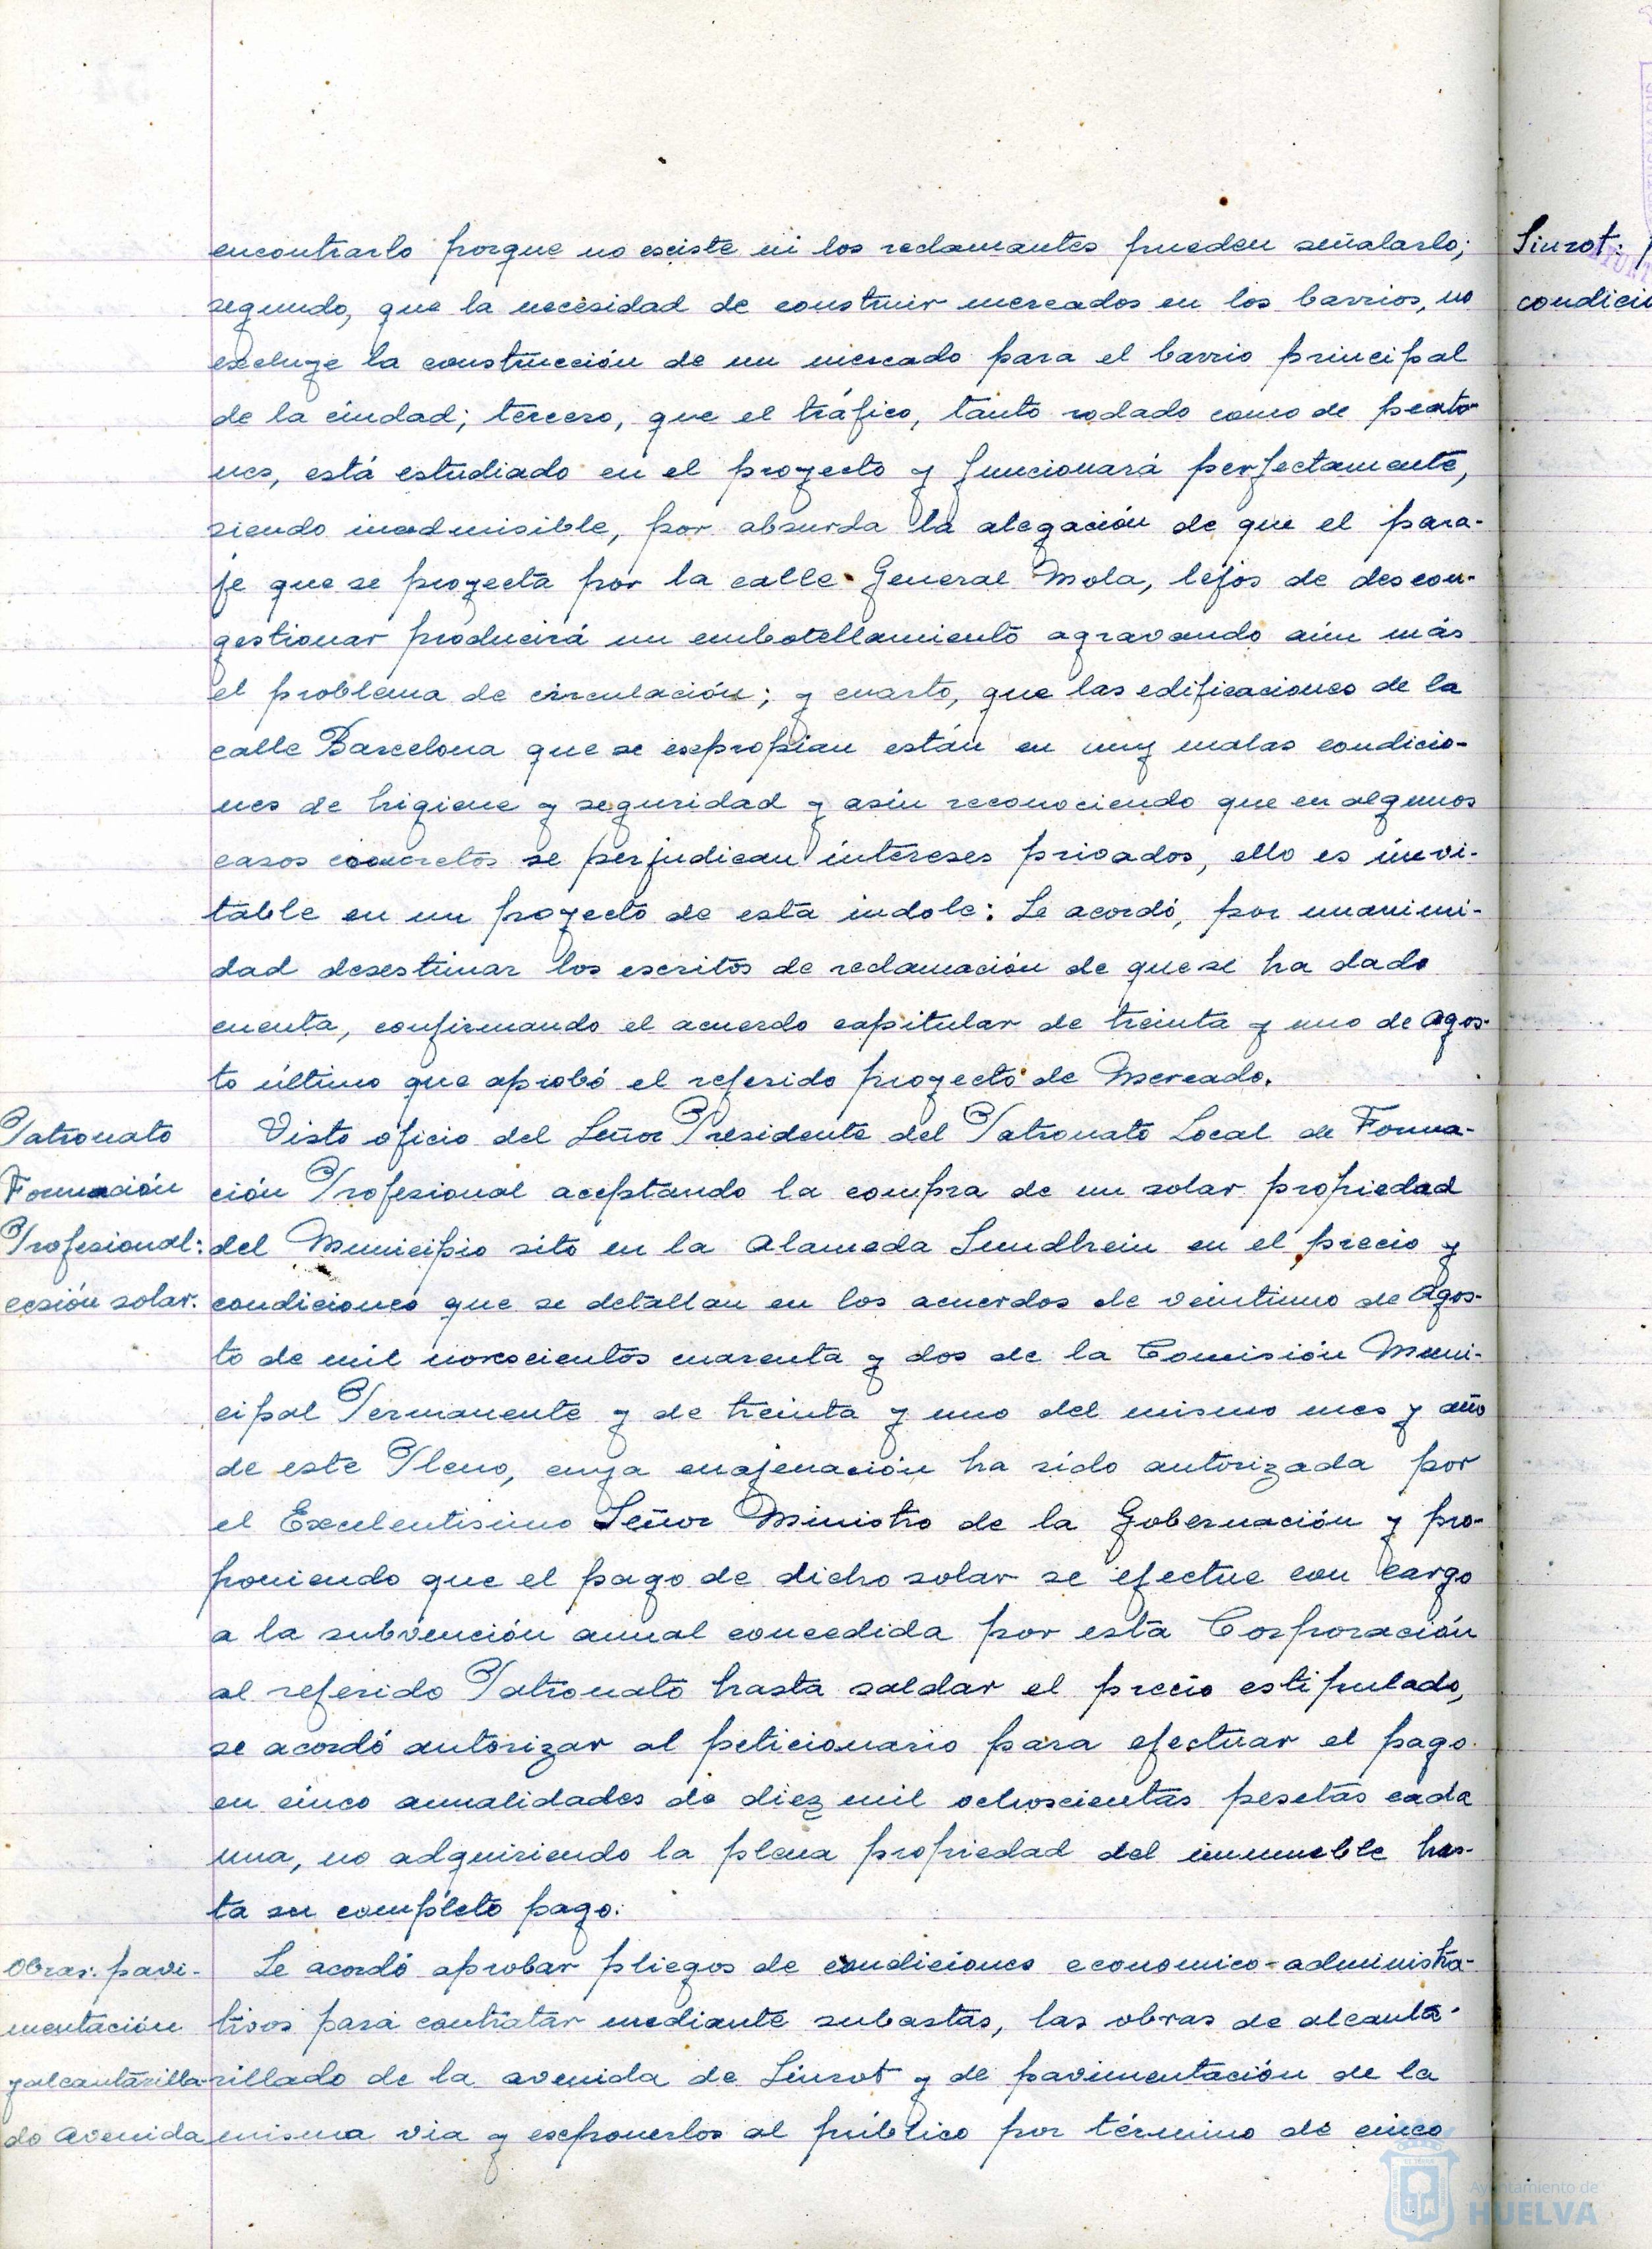 encontrarlo porque no existe ni los reclamantes pueden señalarlo;
segundo, que la necesidad de construir mercados en los barrios, no
excluye la construcción de un mercado para el barrio principal
de la ciudad; tercero, que el tráfico, tanto rodado como de peato-
nes, está estudiado en el proyecto y funcionará perfectamente,
siendo inadmisible, por absurda la alegación de que el para-
je que se proyecta por la calle General Mola, lejos de descon-
gestionar producirá un embotellamiento agravando aún más
el problema de circulación; y cuarto, que las edificaciones de la
calle Barcelona que se expropian están en muy malas condicio-
nes de higiene y seguridad y aún reconociendo que en algunos
casos concretos se perjudican intereses privados, ello es inevi-
table en un proyecto de esta indole: Se acordó, por unanimi-
dad desestimar los escritos de reclamación de que se ha dado
cuenta, confirmando el acuerdo capitular de treinta y uno de Agos-
to último que aprobó el referido proyecto de Mercado.
Patronato
Formación
Profesional:
cesión solar.
Visto oficio del Señor Presidente del Patronato Local de Forma-
ción Profesional aceptando la compra de un solar propiedad
del Municipio sito en la Alameda Sundhein en el precio y
condiciones que se detallan en los acuerdos de veintiuno de Agos-
to de mil novecientos cuarenta y dos de la Comisión Muni-
cipal Permanente y de treinta y uno del mismo mes y año
de este Pleno, cuya enajenación ha sido autorizada por
el Excelentisimo Señor Ministro de la Gobernación y pro-
poniendo que el pago de dicho solar se efectue con cargo
a la subvención anual concedida por esta Corporación
al referido Patronato hasta saldar el precio estipulado,
se acordó autorizar al peticionario para efectuar el pago
en cinco anualidades de diez mil ochoscientas pesetas cada
una, no adquiriendo la plena propiedad del inmueble has-
ta su completo pago.
Obras: pavi-
mentación
y alcantarilla-
do Avenida
Se acordó aprobar pliegos de condiciones economico-administra-
tivos para contratar mediante subastas, las obras de alcanta-
rillado de la avenida de Siurot y de pavimentación de la
misma via y exponerlos al público por término de cinco
Siurot:
Ayuntamiento de
HUELVA